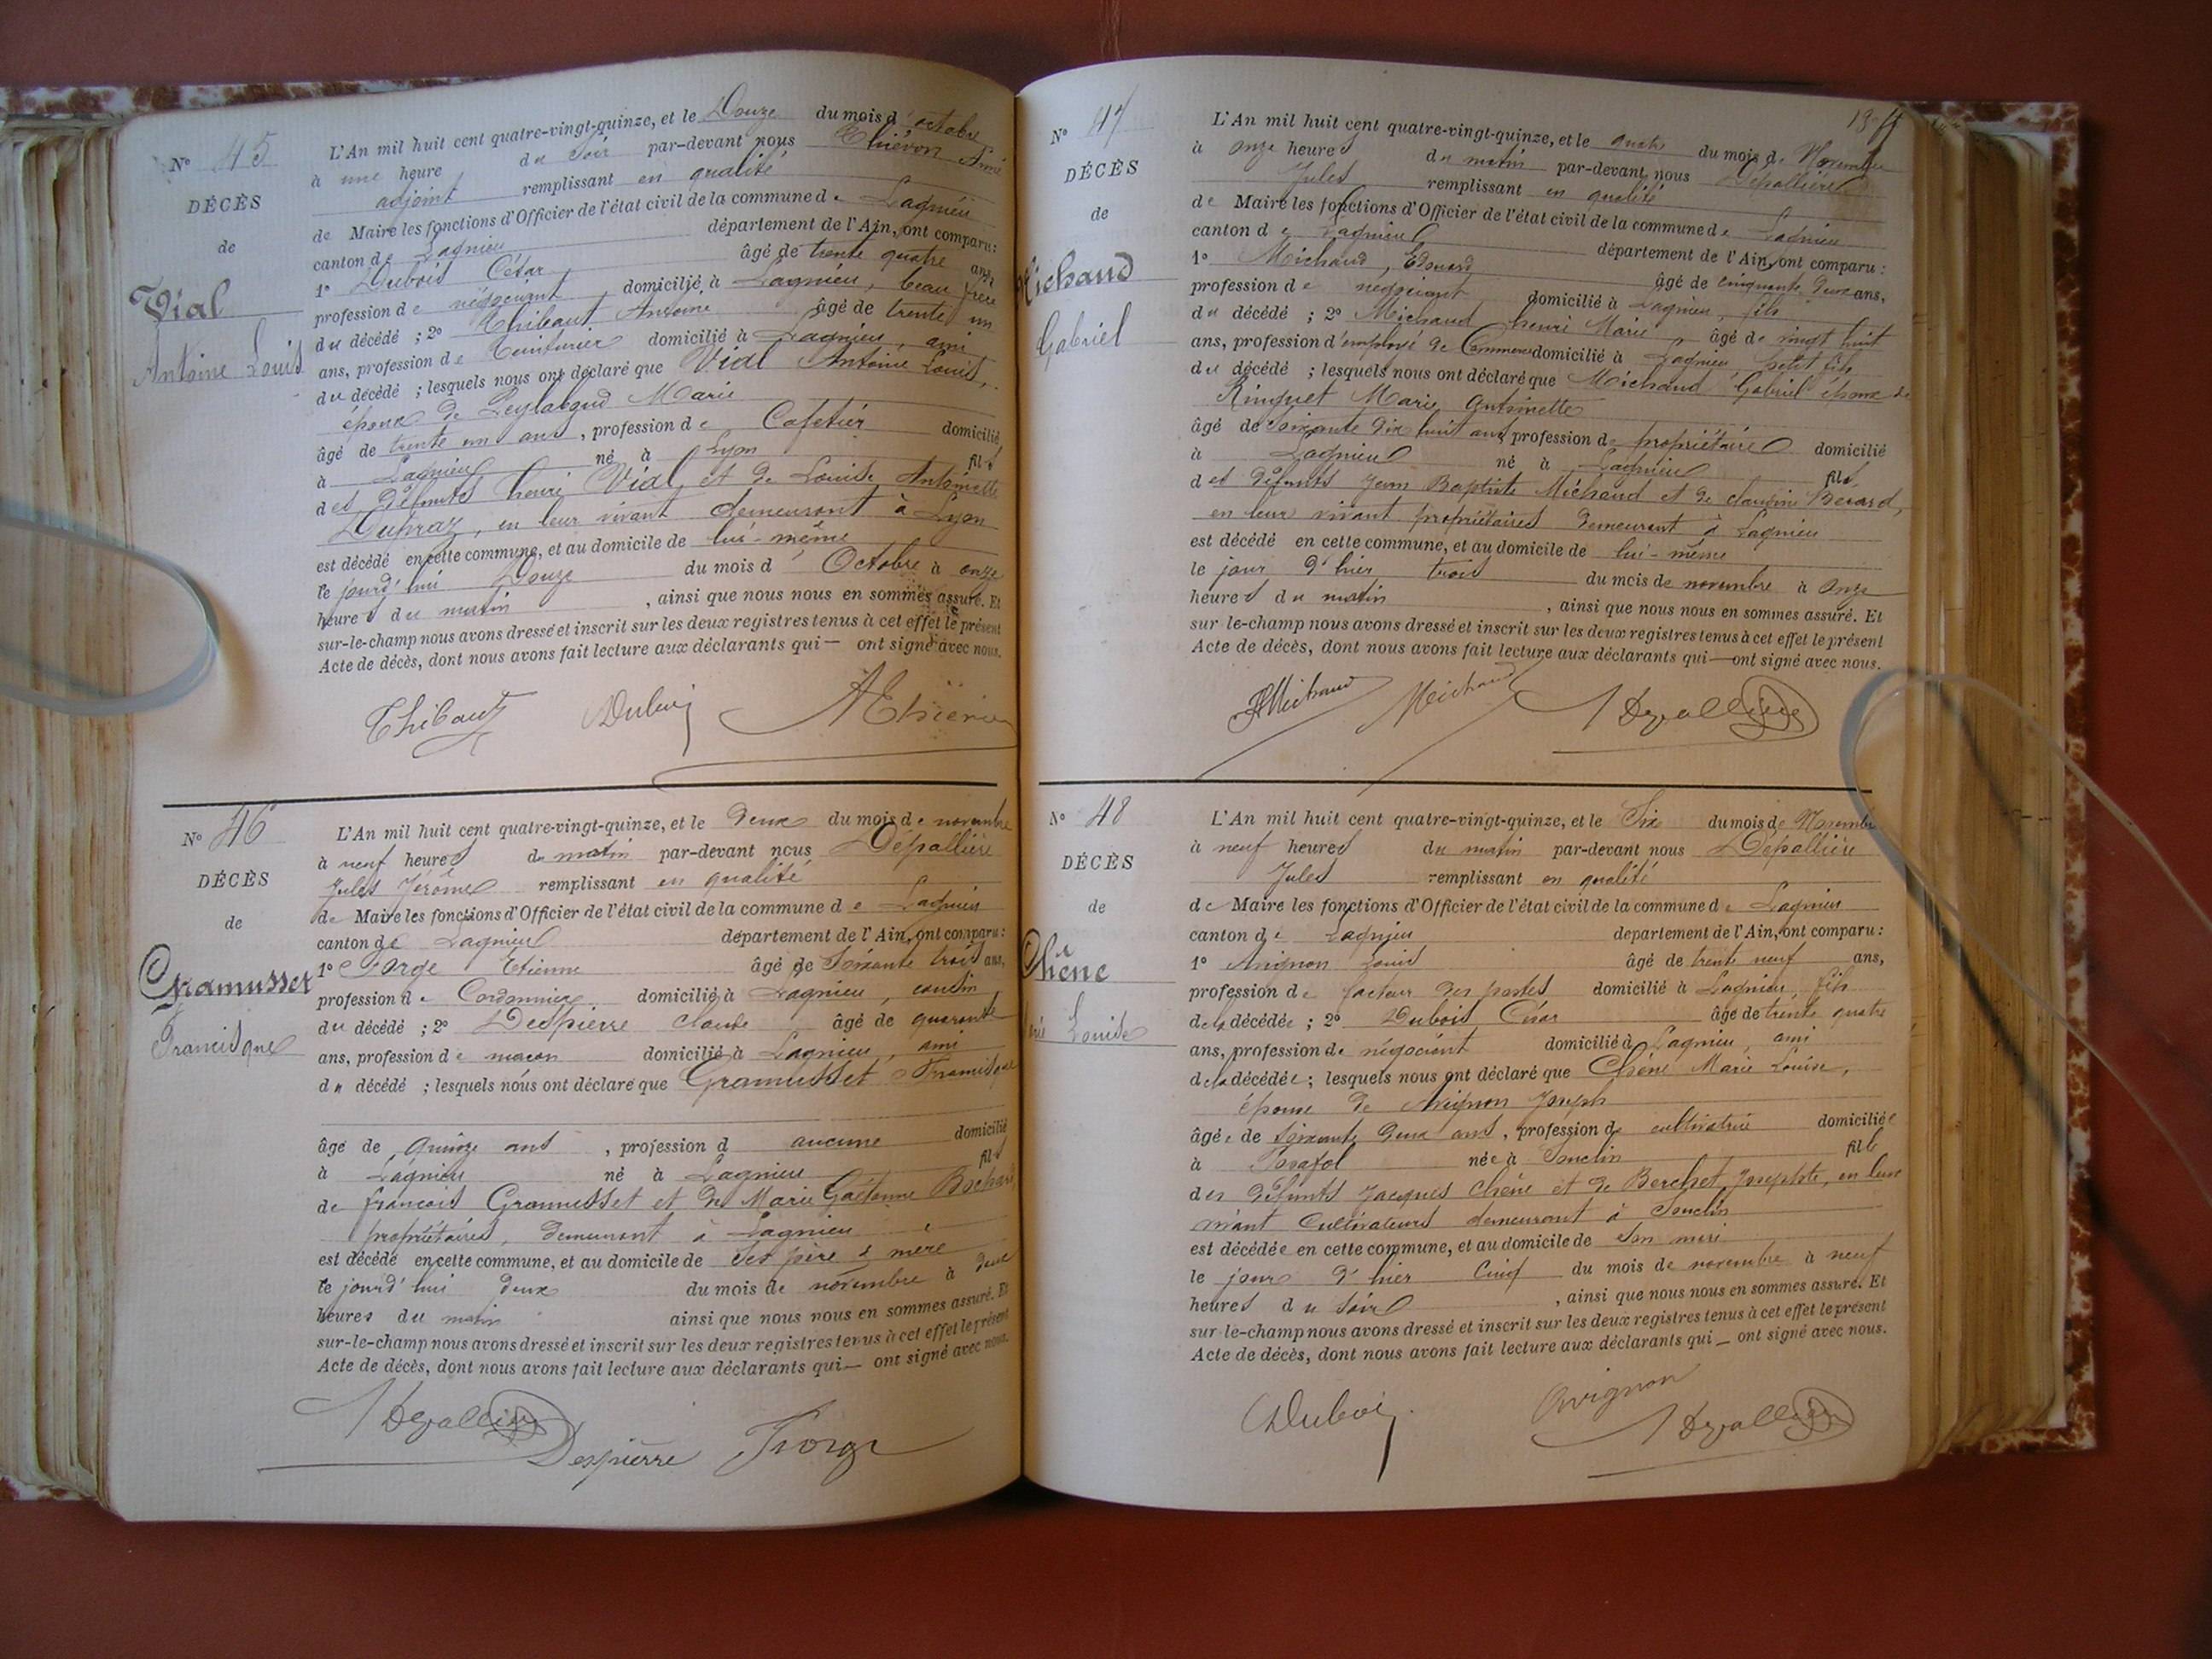 N° 45
DÉCÈS
de
Vial
Antoine Louis
L'An mil huit cent quatre-vingt-quinze, et le Douze du mois d'octobre
à une heure du soir par-devant nous Thiévon Aimé
adjoint remplissant en qualité
de Maire les fonctions d'Officier de l'état civil de la commune de Lagnieu
canton de Lagnieu département de l'Ain, ont comparu :
1° Dubois César âgé de trente quatre ans,
profession de négociant, domicilié à Lagnieu, beau frère
du décédé ; 2° Thibaut Antoine âgé de trente un
ans, profession de Teinturier domicilié à Lagnieu, ami
du décédé ; lesquels nous ont déclaré que Vial Antoine Louis,
époux de Marie
âgé de trente un ans, profession de Cafetier domicilié
à Lagnieu né à Lyon fils
des défunts henri Vial, et de Louise Antoinette
Dupraz, en leur vivant demeurant à Lyon
est décédé en cette commune, et au domicile de lui-même
le jourd'hui Douze du mois d'Octobre à onze
heures du matin, ainsi que nous nous en sommes assuré. Et
sur-le-champ nous avons dressé et inscrit sur les deux registres tenus à cet effet le présent
Acte de décès, dont nous avons fait lecture aux déclarants qui — ont signé avec nous.
Thibaut Dubois AThiévon
N° 46
DÉCÈS
de
Gramusset
Francisque
L'An mil huit cent quatre-vingt-quinze, et le deux du mois de novembre
à neuf heures du matin par-devant nous Dépallière
Jules Jérôme remplissant en qualité
de Maire les fonctions d'Officier de l'état civil de la commune de Lagnieu
canton de Lagnieu département de l'Ain, ont comparu :
1° Etienne âgé de Soixante trois ans,
profession de Cordonnier domicilié à Lagnieu, cousin
du décédé ; 2° Despierre Claude âgé de quarante
ans, profession de maçon domicilié à Lagnieu, ami
du décédé ; lesquels nous ont déclaré que Gramusset Francisque
âgé de quinze ans, profession d aucune domicilié
à Lagnieu né à Lagnieu fils
de françois Gramusset et de Marie Gaëtanne Bochard
propriétaires, demeurant à Lagnieu
est décédé en cette commune, et au domicile de ses père & mère
le jourd'hui deux du mois de novembre à deux
heures du matin ainsi que nous nous en sommes assuré. Et
sur-le-champ nous avons dressé et inscrit sur les deux registres tenus à cet effet le présent
Acte de décès, dont nous avons fait lecture aux déclarants qui — ont signé avec nous.
JDépallière Despierre
N° 47
DÉCÈS
de
Michaud
Gabriel
L'An mil huit cent quatre-vingt-quinze, et le quatre du mois de Novembre
à onze heures du matin par-devant nous Dépallière
Jules remplissant en qualité
de Maire les fonctions d'Officier de l'état civil de la commune de Lagnieu
canton de Lagnieu département de l'Ain, ont comparu :
1° Michaud, Edouard âgé de cinquante deux ans,
profession de négociant domicilié à Lagnieu, fils
du décédé ; 2° Michaud henri Marie âgé de vingt huit
ans, profession d'employé de Commerce domicilié à Lagnieu, petit fils
du décédé ; lesquels nous ont déclaré que Michaud Gabriel époux de
Ringuet Marie Antoinette
âgé de soixante dix huit ans, profession de propriétaire domicilié
à Lagnieu né à Lagnieu fils
des défunts Jean Baptiste Michaud et de claudine Berard,
en leur vivant propriétaires demeurant à Lagnieu
est décédé en cette commune, et au domicile de lui-même
le jour d'hier trois du mois de novembre à onze
heures du matin, ainsi que nous nous en sommes assuré. Et
sur le-champ nous avons dressé et inscrit sur les deux registres tenus à cet effet le présent
Acte de décès, dont nous avons fait lecture aux déclarants qui — ont signé avec nous.
HMichaud Michaud JDépallière
N° 48
DÉCÈS
de
Chêne
Louise
L'An mil huit cent quatre-vingt-quinze, et le Six du mois de Novembre
à neuf heures du matin par-devant nous Dépallière
Jules remplissant en qualité
de Maire les fonctions d'Officier de l'état civil de la commune de Lagnieu
canton de Lagnieu département de l'Ain, ont comparu :
1° Avignon Louis âgé de trente neuf ans,
profession de facteur des postes domicilié à Lagnieu, fils
de la décédée ; 2° Dubois César âgé de trente quatre
ans, profession de négociant domicilié à Lagnieu, ami
de la décédée ; lesquels nous ont déclaré que Chêne Marie Louise,
épouse de Avignon Joseph
âgée de soixante deux ans, profession de cultivatrice domiciliée
à Posafol née à Souclin fille
des défunts Jacques Chêne et de Berchet Josephte, en leur
vivant Cultivateurs demeurant à Souclin
est décédée en cette commune, et au domicile de son mari
le jour d'hier cinq du mois de novembre à neuf
heures du soir, ainsi que nous nous en sommes assuré. Et
sur-le-champ nous avons dressé et inscrit sur les deux registres tenus à cet effet le présent
Acte de décès, dont nous avons fait lecture aux déclarants qui — ont signé avec nous.
Dubois Avignon JDépallière